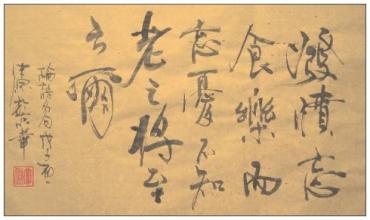 發憤忘
食樂而
忘憂不知
老之將至
云爾
論語名句